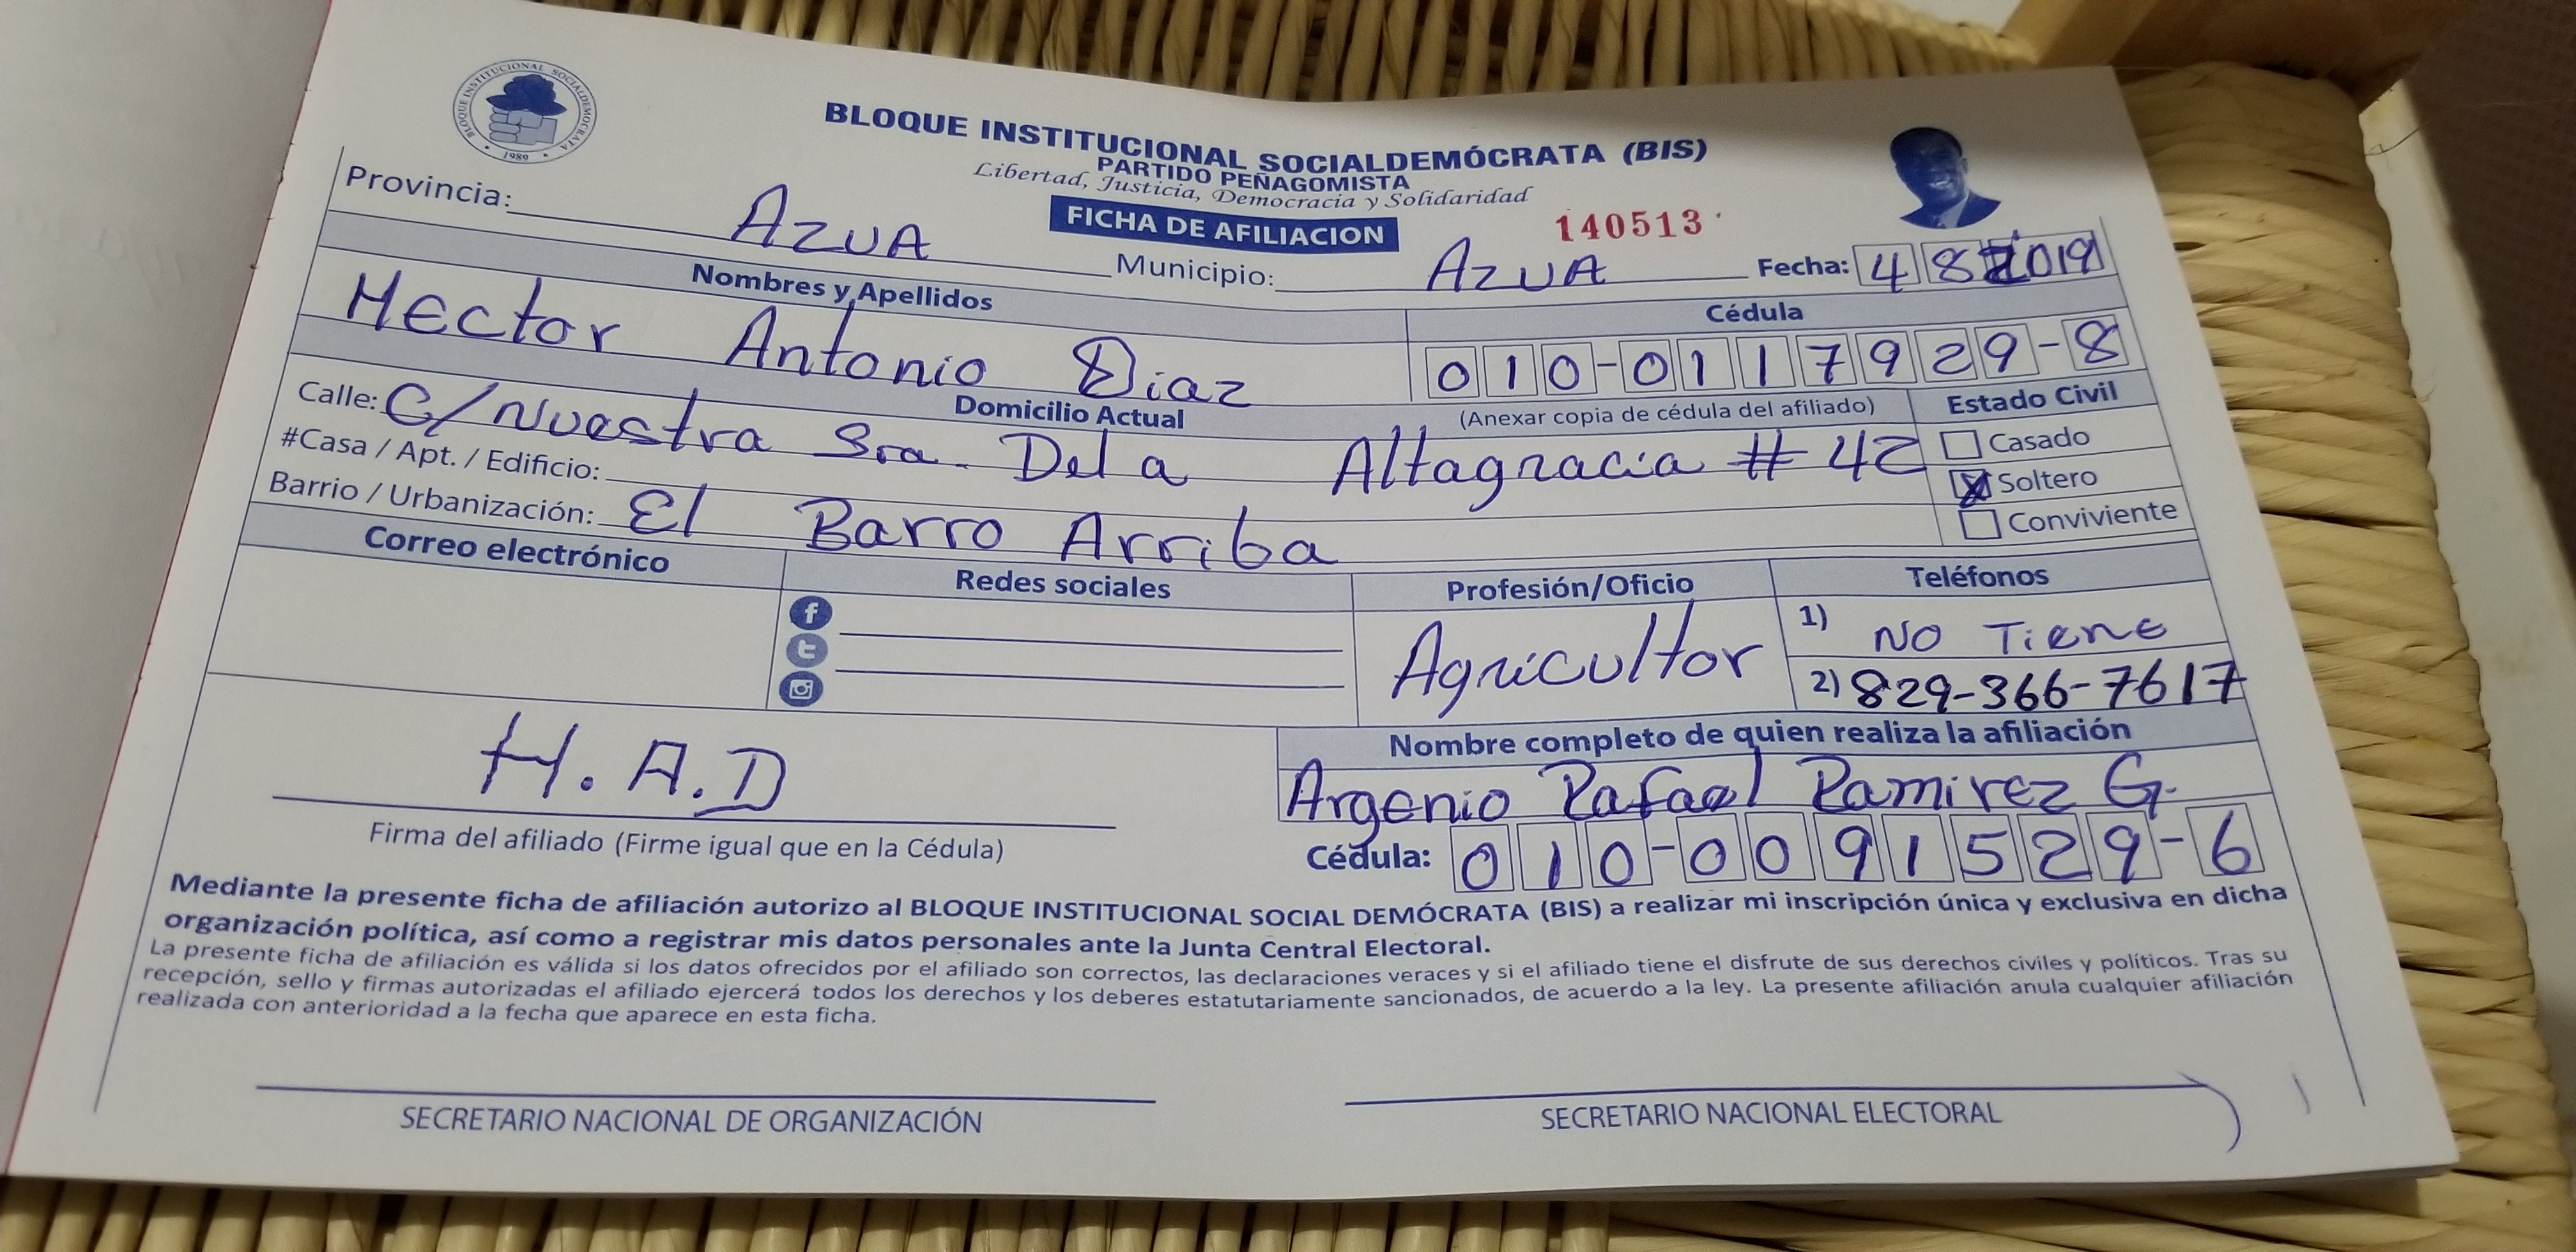 BLOQUE INSTITUCIONAL SOCIALDEMOCRATA
1989
BLOQUE INSTITUCIONAL SOCIALDEMÓCRATA (BIS)
PARTIDO PEÑAGOMISTA
Libertad, Justicia, Democracia y Solidaridad
FICHA DE AFILIACION
140513
Provincia: AZUA Municipio: AZUA Fecha: 4 8 2019
Nombres y Apellidos Cédula
Hector Antonio Diaz 010-0117929-8
Domicilio Actual (Anexar copia de cédula del afiliado) Estado Civil
Calle: C/ Nuestra Sra. Dela Altagracia # 42 Casado
#Casa / Apt. / Edificio: Soltero
Barrio / Urbanización: El Barro Arriba Conviviente
Correo electrónico Redes sociales Profesión/Oficio Teléfonos
Agricultor 1) NO Tiene
2) 829-366-7617
H.A.D
Nombre completo de quien realiza la afiliación
Argenio Rafael Ramirez G.
Firma del afiliado (Firme igual que en la Cédula) Cédula: 010-0091529-6
Mediante la presente ficha de afiliación autorizo al BLOQUE INSTITUCIONAL SOCIAL DEMÓCRATA (BIS) a realizar mi inscripción única y exclusiva en dicha
organización política, así como a registrar mis datos personales ante la Junta Central Electoral.
La presente ficha de afiliación es válida si los datos ofrecidos por el afiliado son correctos, las declaraciones veraces y si el afiliado tiene el disfrute de sus derechos civiles y políticos. Tras su
recepción, sello y firmas autorizadas el afiliado ejercerá todos los derechos y los deberes estatutariamente sancionados, de acuerdo a la ley. La presente afiliación anula cualquier afiliación
realizada con anterioridad a la fecha que aparece en esta ficha.
SECRETARIO NACIONAL DE ORGANIZACIÓN SECRETARIO NACIONAL ELECTORAL